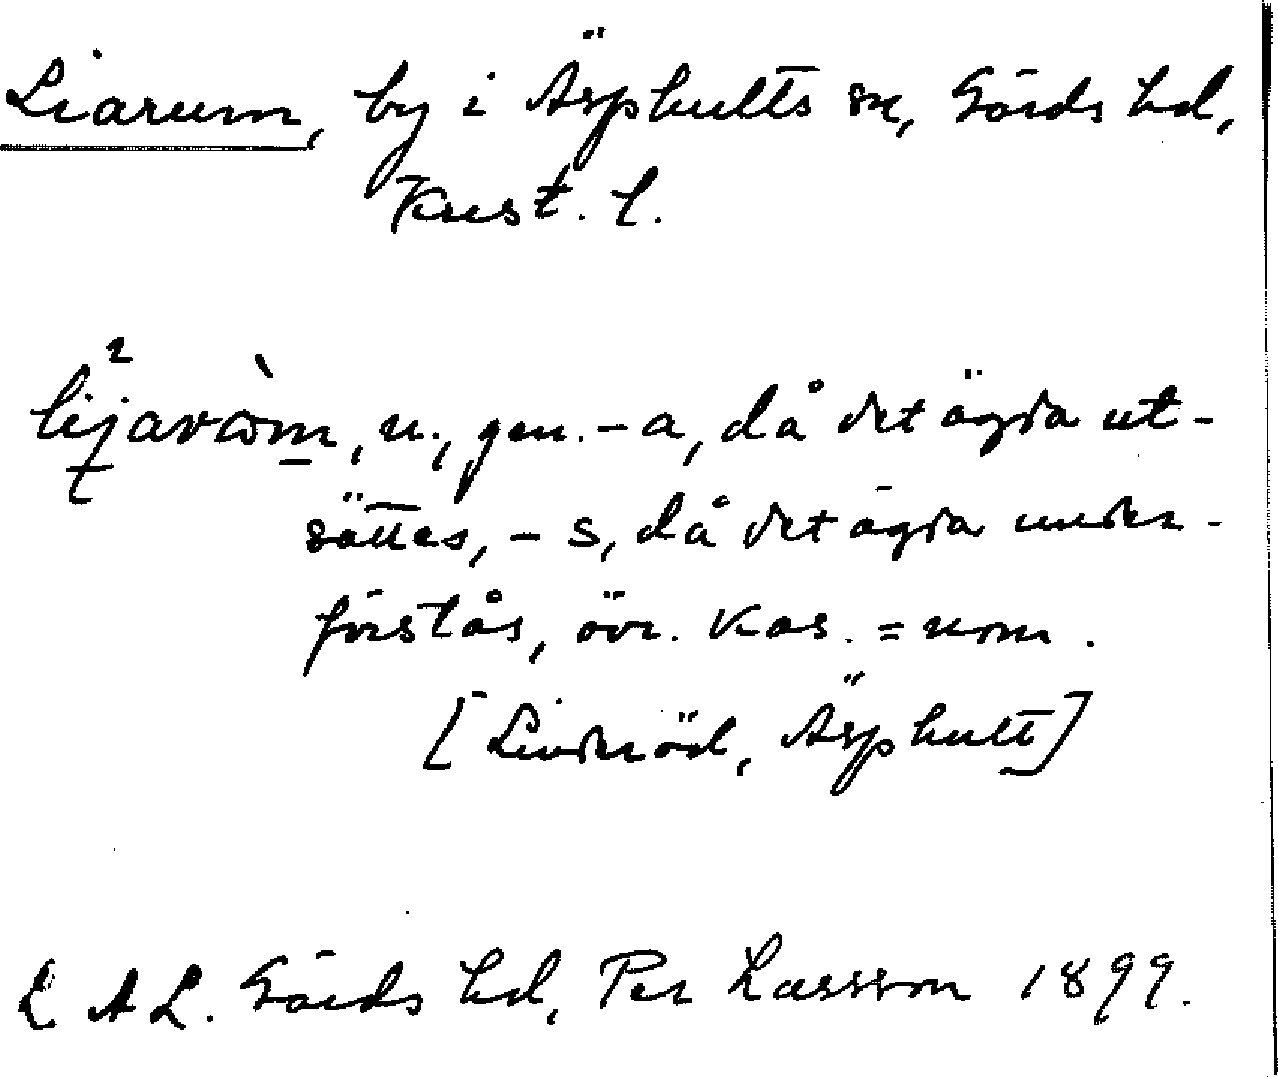 Liarum, by i Äsphults sn, Gärds hd,
Krist. l.
n., gen. -a, då det ägda ut-
sättes, -s, då det ägda under-
förstås, övr. kas. = nom.
[Linderöd, Äsphult]
L A L. Gärds hd, Per Larsson 1899.